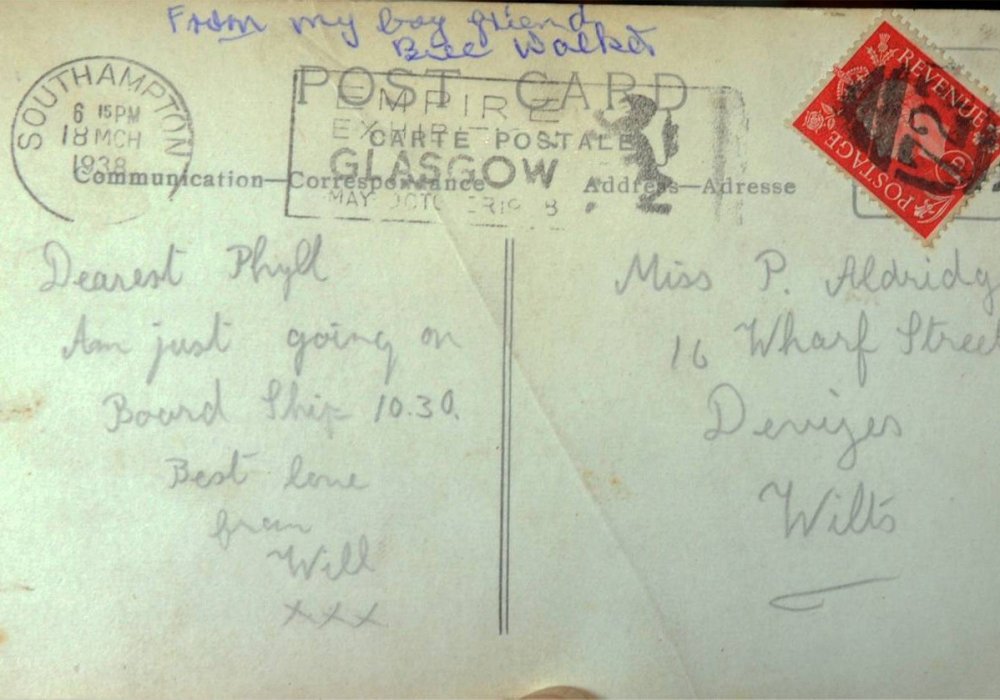 From my boy friend
Bill Walker
SOUTHAMPTON
6 15PM
18 MCH
1938
POST CARD
EMPIRE
CARTE POSTALE
GLASGOW
Communication—Correspondance
Address—Adresse
REVENUE
POSTAGE
172
Dearest Phyll
Am just going on
Board Ship 10.30.
Best love
from
Will
xxx
Miss P. Aldridg
16 Wharf Street
Devizes
Wilts